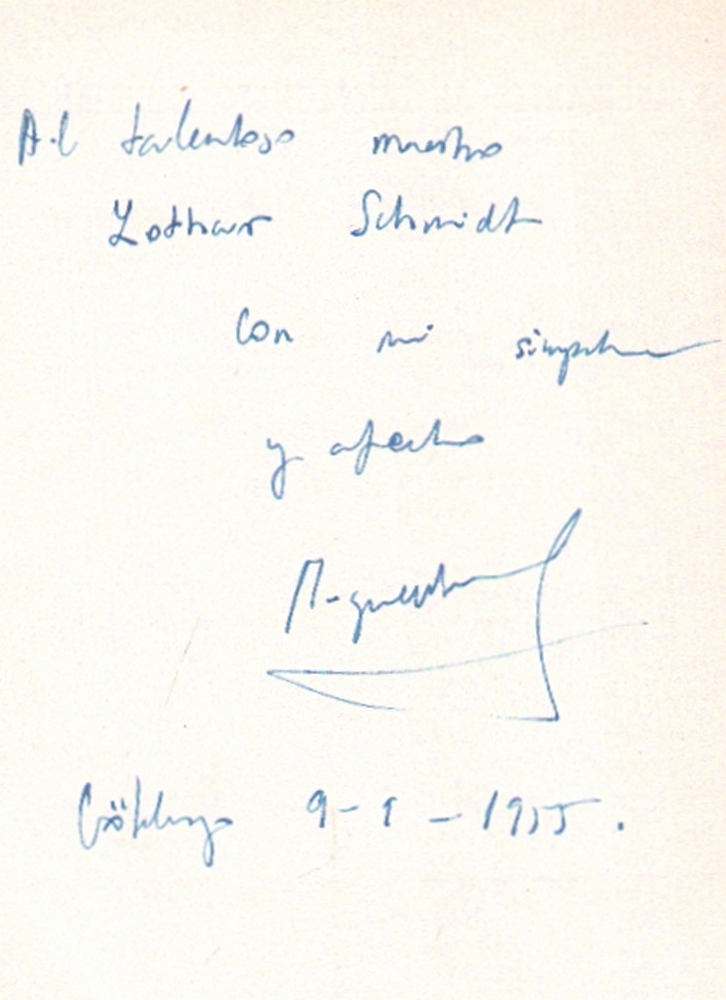 Al talentoso maestro
Lothar Schmidt
con mi simpatia
y afecto
Göteborg 9-9-1955.